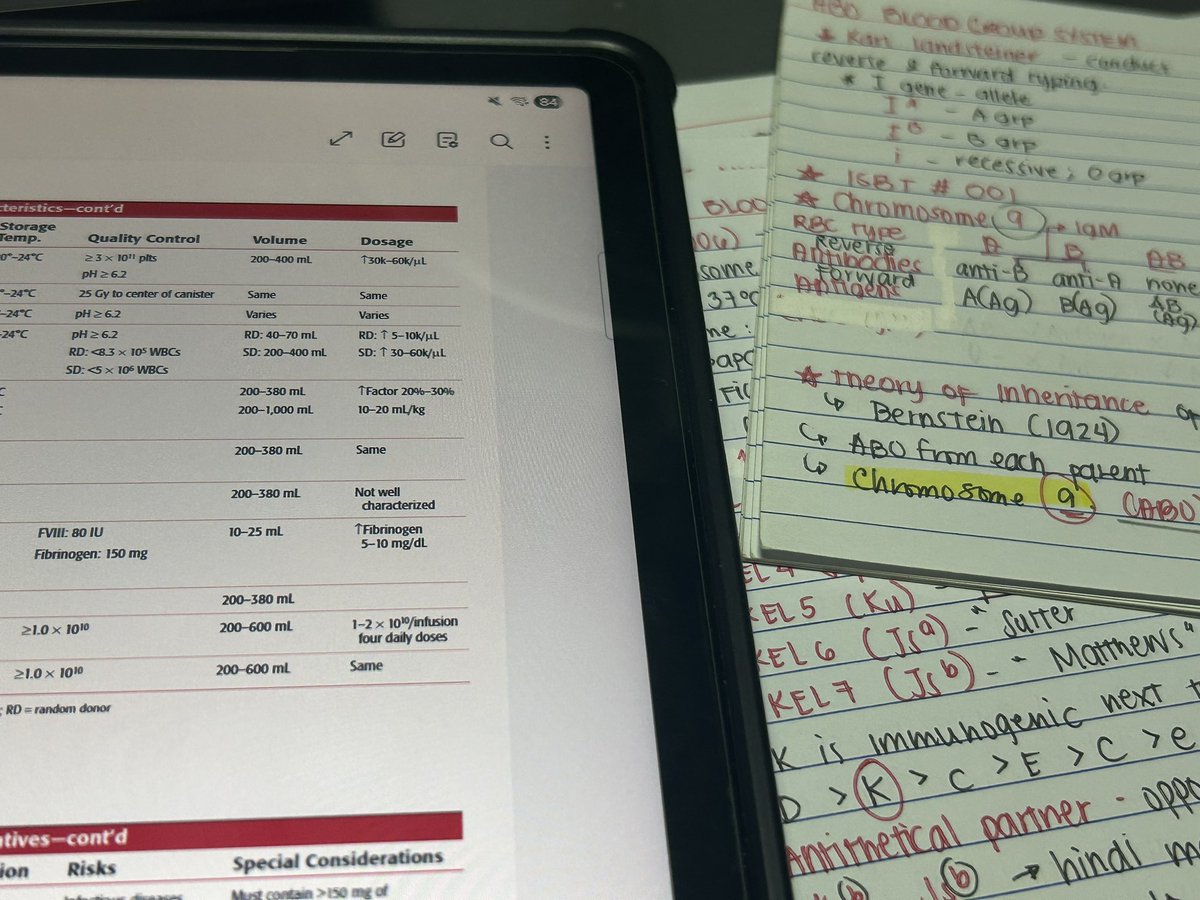 84
cteristics—cont'd
Storage
Temp.
Quality Control
Volume
Dosage
0°–24°C
≥3 × 10¹¹ plts
200–400 mL
↑30k–60k/μL
pH ≥ 6.2
°–24°C
25 Gy to center of canister
Same
Same
–24°C
pH ≥ 6.2
Varies
Varies
24°C
pH ≥ 6.2
RD: 40–70 mL
RD: ↑ 5–10k/μL
RD: <8.3 × 10⁵ WBCs
SD: 200–400 mL
SD: ↑ 30–60k/μL
SD: <5 × 10⁶ WBCs
200–380 mL
↑Factor 20%–30%
200–1,000 mL
10–20 mL/kg
200–380 mL
Same
200–380 mL
Not well
characterized
FVIII: 80 IU
10–25 mL
↑Fibrinogen
5–10 mg/dL
Fibrinogen: 150 mg
200–380 mL
≥1.0 × 10¹⁰
200–600 mL
1–2 × 10¹⁰/infusion
four daily doses
≥1.0 × 10¹⁰
200–600 mL
Same
; RD = random donor
atives—cont'd
ion
Risks
Special Considerations
Infectious diseases
Must contain >150 mg of
ABO BLOOD GROUP SYSTEM
★ Karl Landsteiner - conduct
reverse & forward typing.
* I gene - allele
Iᴬ - A grp
Iᴮ - B grp
i - recessive; O grp
★ ISBT # 001
★ Chromosome 9
→ IgM
RBC type
A
B
AB
Reverse
Antibodies
anti-B
anti-A
none
Forward
Antigens
A(Ag)
B(Ag)
AB
(Ag)
★ Theory of Inheritance of
↳ Bernstein (1924)
↳ ABO from each parent
↳ Chromosome 9 (ABO)
BLOO
06)
some
37°C
me:
KEL 5 (Ku) -
KEL 6 (Jsᵃ) - "Sutter
KEL 7 (Jsᵇ) - "Matthews"
K is immunogenic next t
D > K > C > E > C > e
Antithetical partner - oppo
Jsᵇ → hindi m